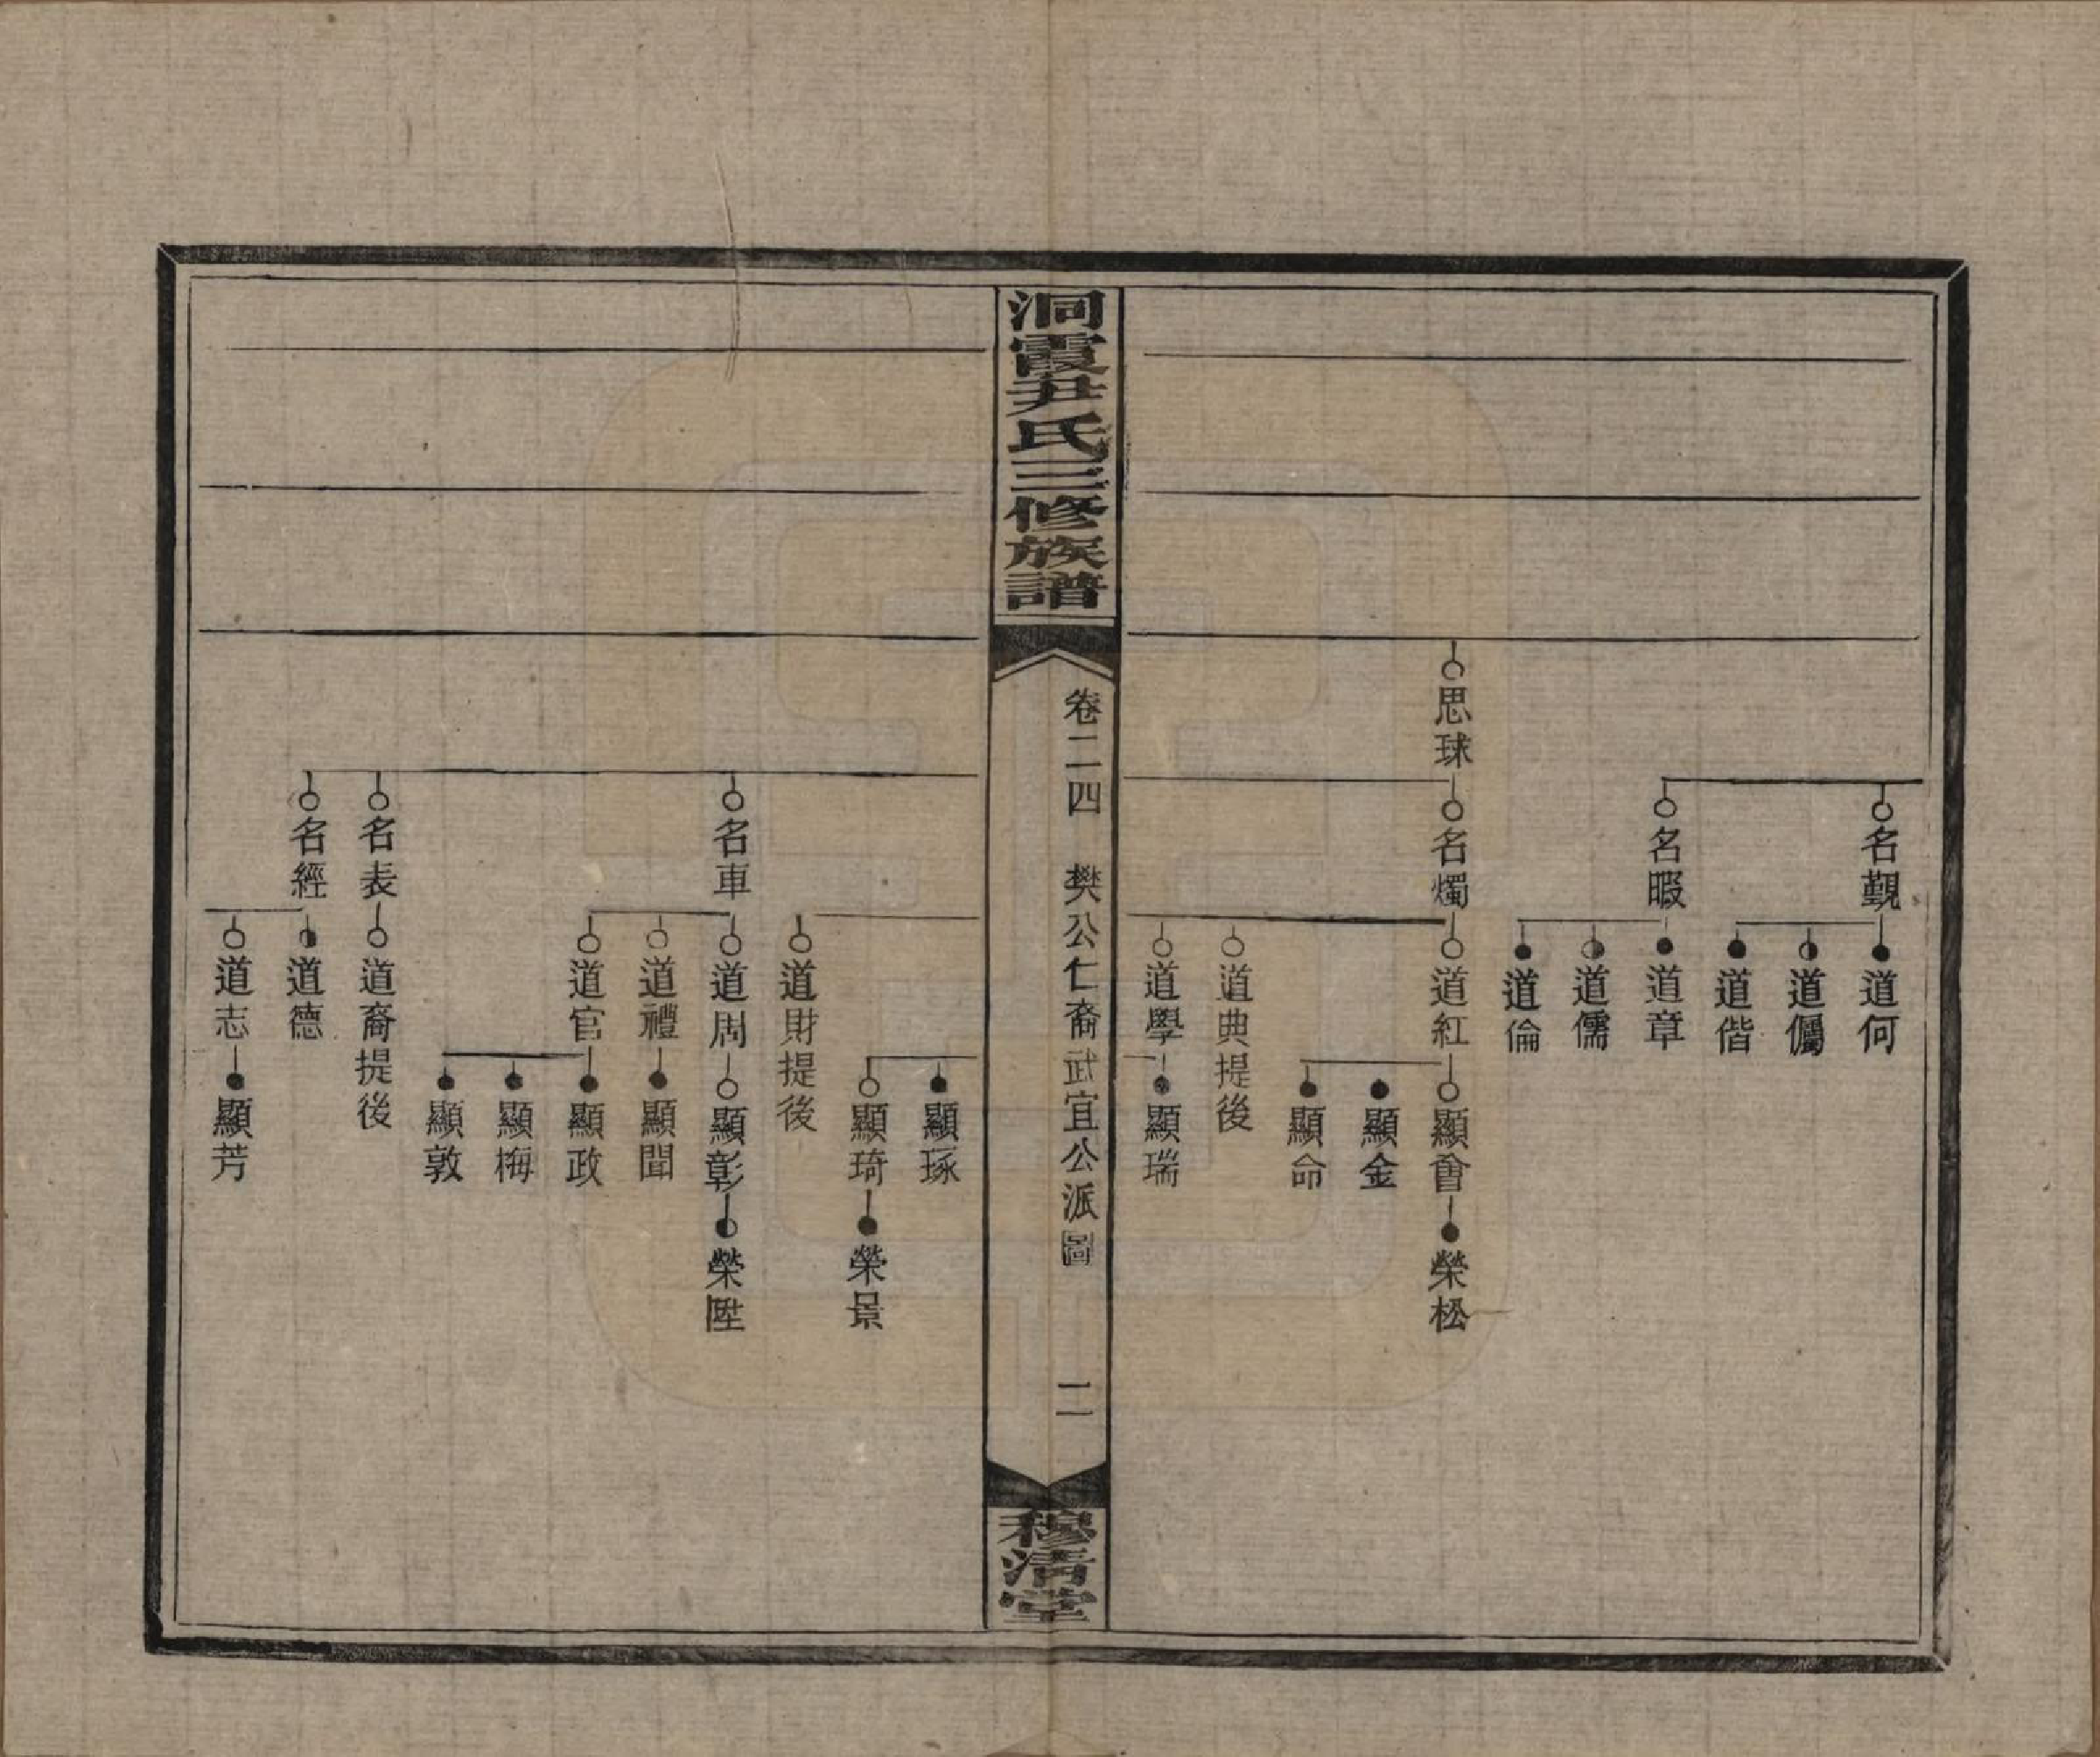 名覲
道何
道儞
道偕
名暇
道章
道儒
道倫
思球
名燭
道紅
顯會
榮松
顯金
顯命
道典提後
道學
顯瑞
洞霞尹氏三修族譜
卷二四 樊公仁裔武宜公派圖
二
穆清堂
顯琢
顯琦
榮景
道財提後
名車
道周
顯彰
榮陞
道禮
顯聞
道官
顯政
顯梅
顯敦
名表
道裔提後
名經
道德
道志
顯芳